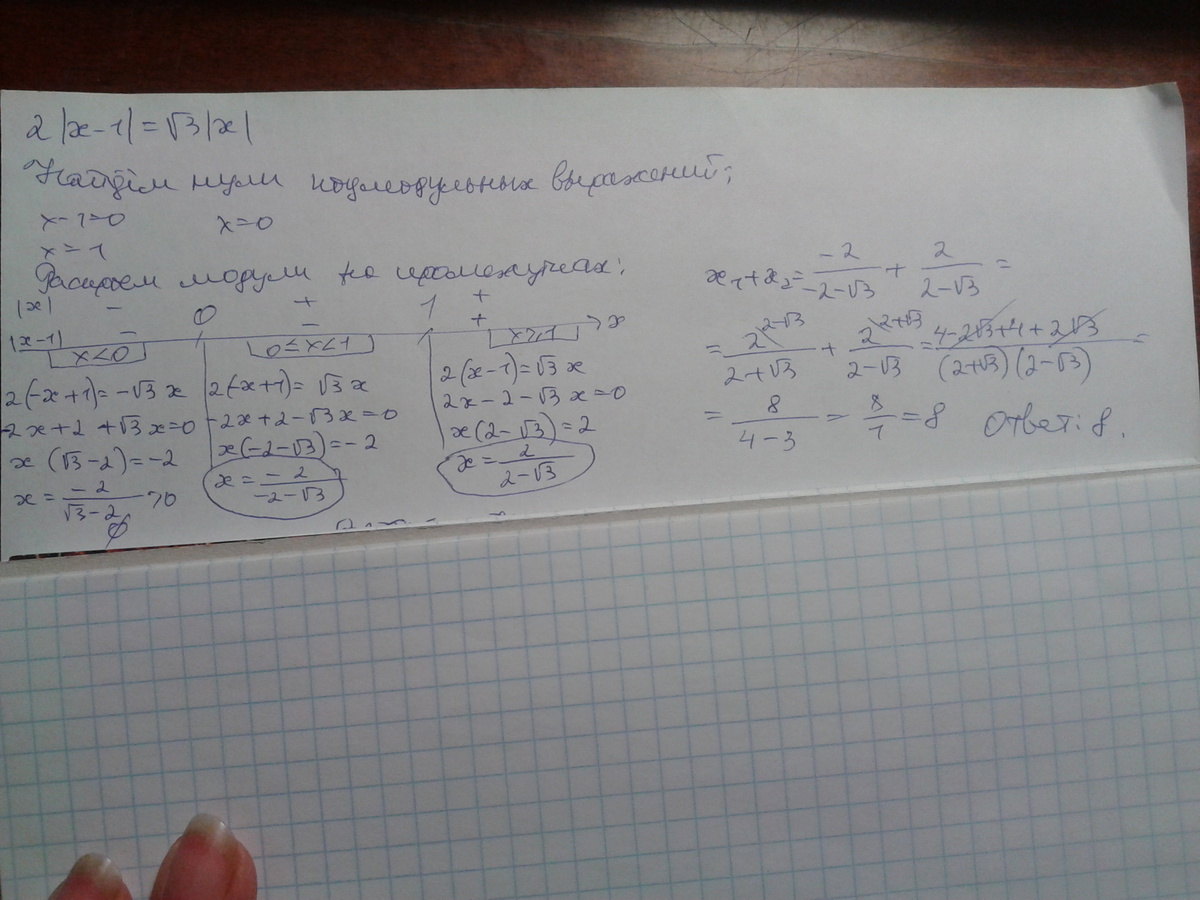 2|x-1|=√3|x|
Найдём нули подмодульных выражений:
x-1=0 x=0
x=1
Раскроем модули на промежутках:
|x| - 0 + 1 +
|x-1| - - + x
x<0 0≤x<1 x≥1
2(-x+1)=-√3x
-2x+2+√3x=0
x(√3-2)=-2
x=-2/(√3-2) >0
∅
2(-x+1)=√3x
-2x+2-√3x=0
x(-2-√3)=-2
x=-2/(-2-√3)
2(x-1)=√3x
2x-2-√3x=0
x(2-√3)=2
x=2/(2-√3)
x₁+x₂=-2/(-2-√3)+2/(2-√3)=
=2\2-√3/(2+√3)+2\2+√3/(2-√3)=(4-2√3+4+2√3)/((2+√3)(2-√3))=
=8/(4-3)=8/1=8 Ответ: 8.